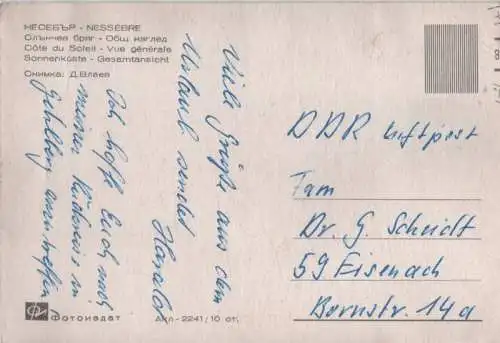 НЕСЕБЪР - NESSEBRE
Слънчев бряг - Общ изглед
Côte du Soleil - Vue générale
Sonnenküste - Gesamtansicht
Снимка: Д.Влаев
Viele Grüße aus dem
Urlaub sendet
Harald
Ich hoffe Euch nach
meiner Rückreise in
Gehlberg anzutreffen
DDR Luftpost
Fam
Dr. G. Scheidt
59 Eisenach
Bornstr. 14a
Фотоиздат
Акл - 2241/10 ст.
8